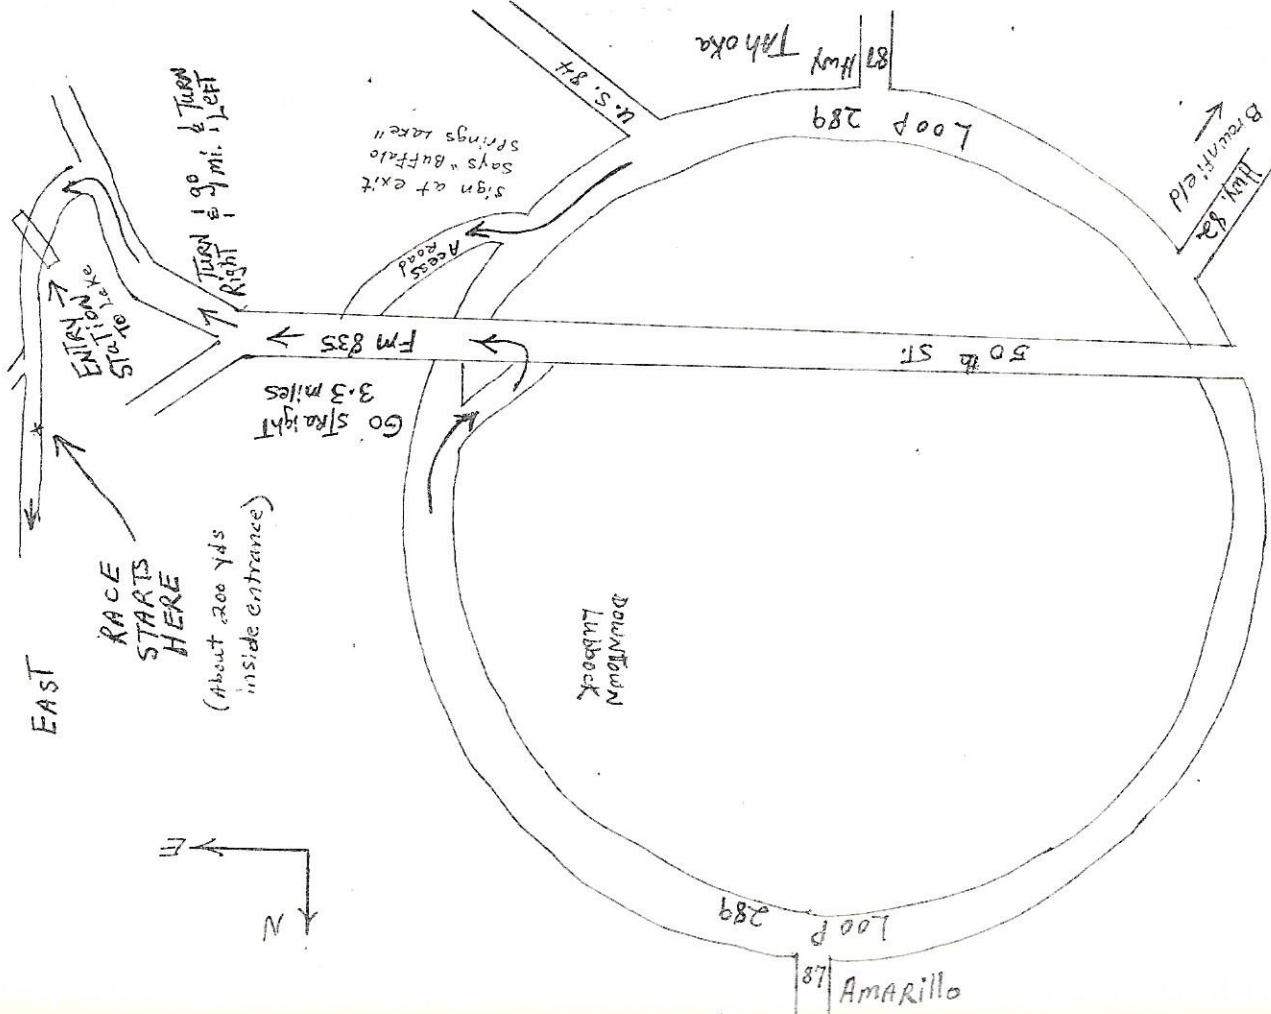 TAhoKa
Hwy
87
U.S. 84
LOOP 289
Brownfield
Hwy. 82
sign at exit
says "Buffalo
springs Lake"
Acess
Road
TURN
Right
& TURN
Left
ENTRY
StaTION
To Lake
FM 835
50 th ST.
GO sTRaighT
3.3 miles
RACE
STARTS
HERE
(About 200 yds
inside entrance)
EAST
DownTown
Lubbock
E
N
LOOP 289
87
AMARillo